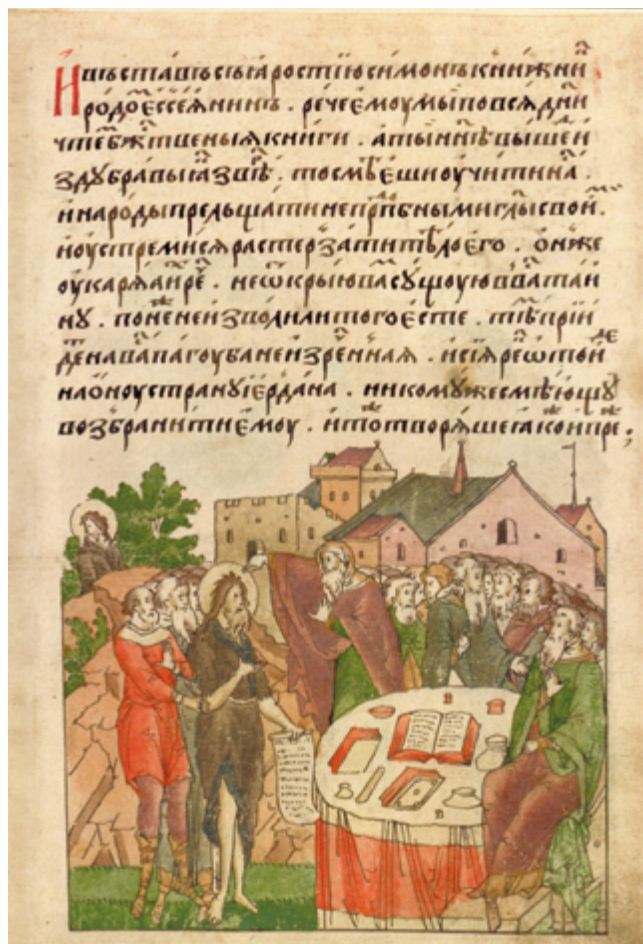 И въставъ съ ꙗростїю симонъ книжникъ
родо́мъ ессеѧнинъ . рече емоу мы по всѧ дн҃и
чтемъ бж҃твеныѧ книги . а ты нн҃ѣ вышел и
з дубравы ꙗ звѣрь . то смѣеши оучити на
и народы прельщати непрпⷣбными гл҃ы свои .
и оустремисѧ растерзати тѣло его . он же
оукарѧа и рⷱе . не ѿкрыю ва сущоую в ва таи
ну . понеⷤ не изволили того есте . тѣ прїи
де на ва пагоуба неизреннаѧ . и сїѧ ре ѿтоиде
на ону страну їердана . никому же смѣющу
возбранити емоу . и то творѧше ꙗкоⷤ и преⷤ ;